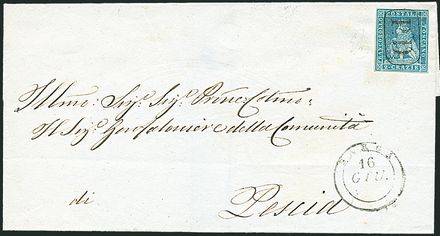 FRANCOBOLLO POSTALE TOSCANO
2 CRAZIE
PD
Illmo: Sig.e Sig.e Prone Colmo:
Il Sig.e Gonfaloniere della Comunità
16
GIU.
di Pescia